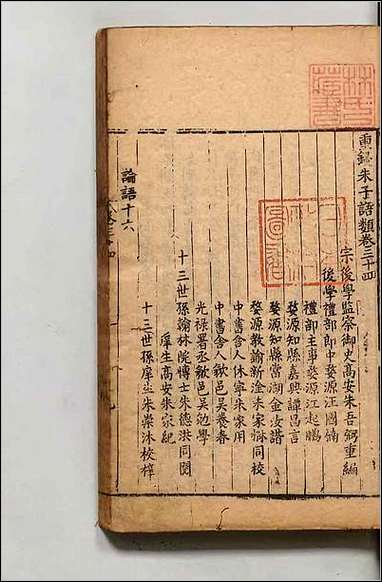 重鋟朱子語類卷三十四
宗後學監察御史高安朱吾弼重編
後學禮部郎中婺源汪國楠
禮部主事婺源江起鵬
婺源知縣嘉興譚昌言
婺源知縣當湖金汝諧
婺源教諭新淦朱家楙同校
中書舍人休寧朱家用
中書舍人歙邑吳養春
光祿署丞歙邑吳勉學
十三世孫翰林院博士朱德洪同閱
庠生高安朱家紀
十三世孫庠生朱崇沐校梓
論語十六